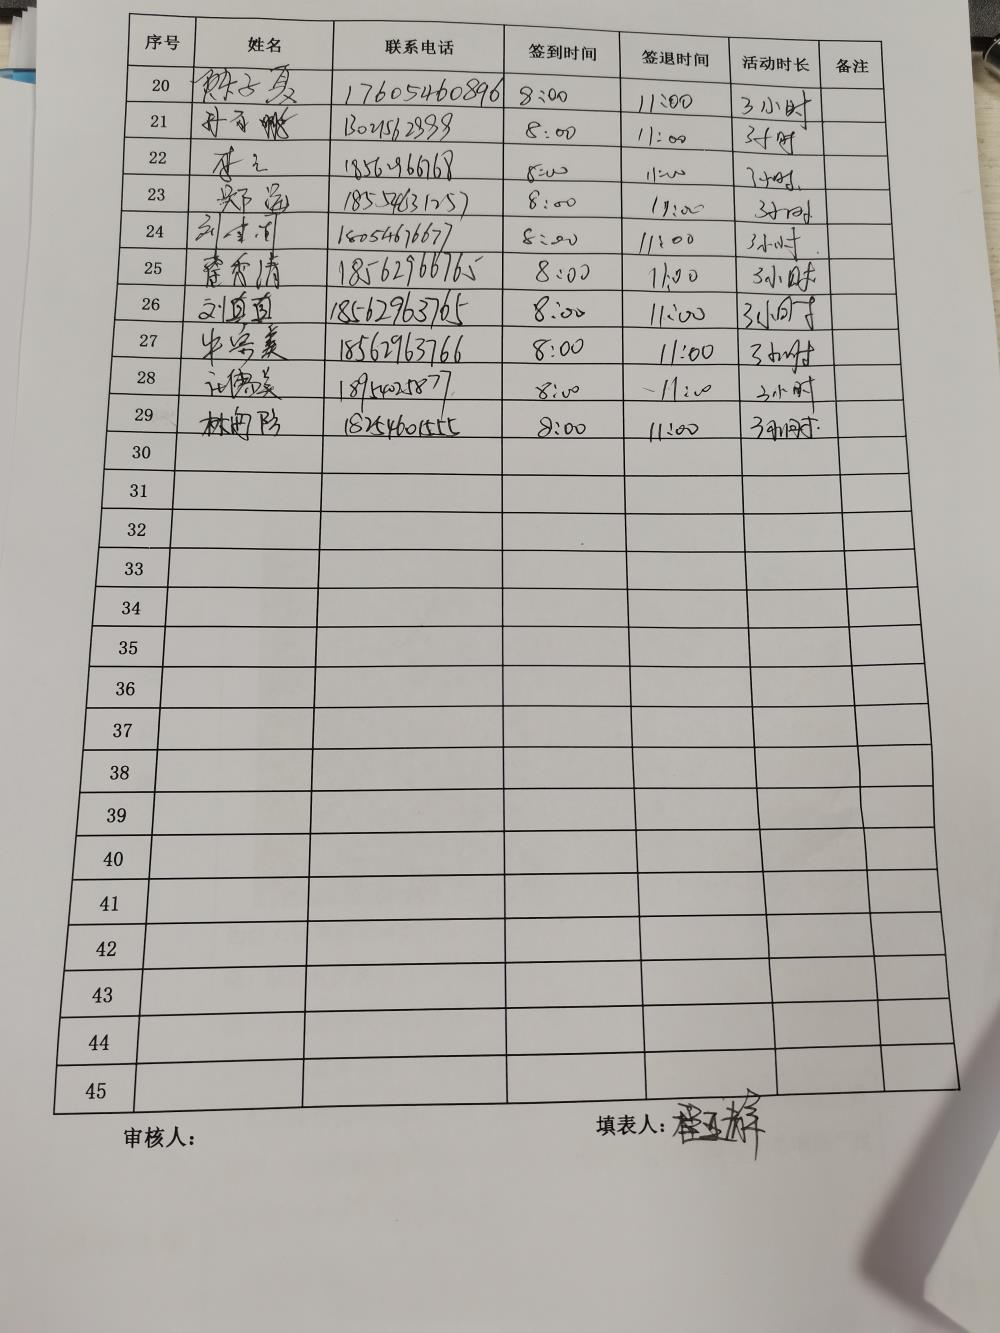 序号 姓名 联系电话 签到时间 签退时间 活动时长 备注
20 陈子夏 17605460896 8:00 11:00 3小时
21 13021562999 8:00 11:00 3小时
22 李 18562966768 8:00 11:00 3小时
23 郑 18554631257 8:00 11:00 3小时
24 刘 18054676677 8:00 11:00 3小时
25 秀清 18562966765 8:00 11:00 3小时
26 刘直直 18562963765 8:00 11:00 3小时
27 18562963766 8:00 11:00 3小时
28 美 18954025877 8:00 11:00 3小时
29 林 18254601555 8:00 11:00 3小时
30
31
32
33
34
35
36
37
38
39
40
41
42
43
44
45
审核人: 填表人: